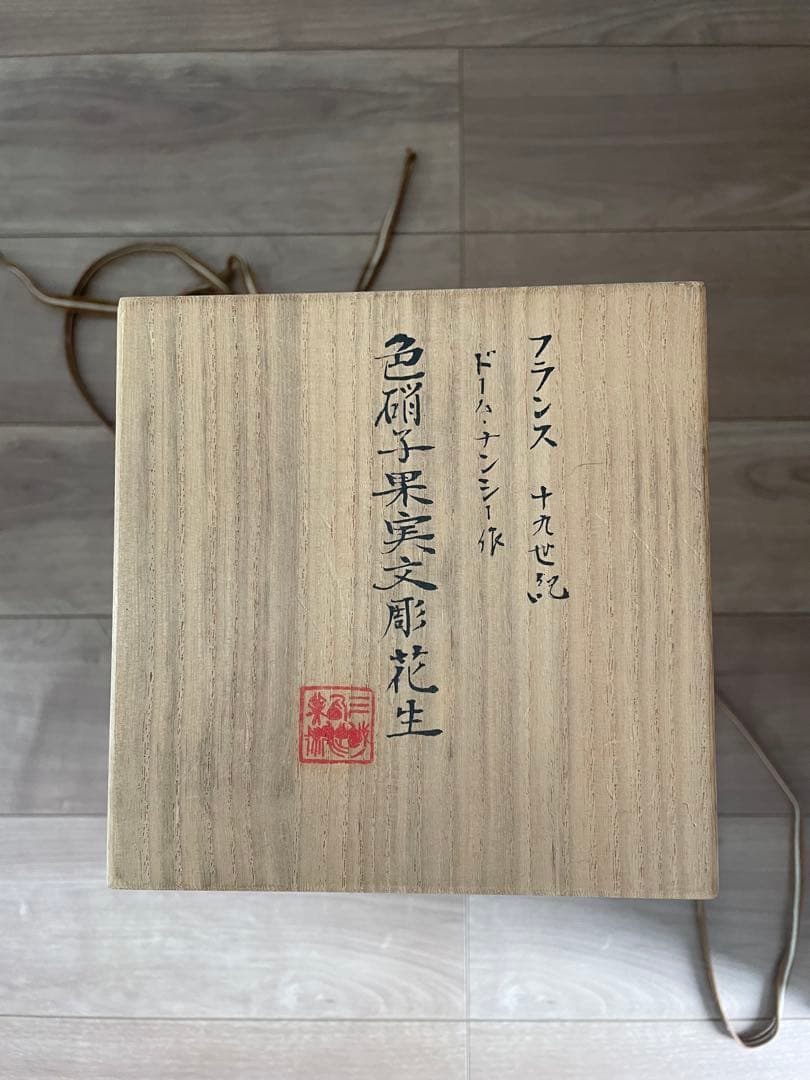 フランス 十九世紀
ドーム・ナンシー作
色硝子果実文彫花生